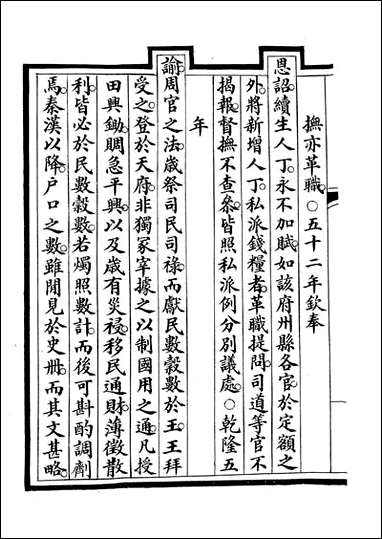 撫亦革職○五十二年欽奉
恩詔續生人丁永不加賦如該府州縣各官於定額之
外將新增人丁私派錢糧者革職提問司道等官不
揭報督撫不查叅皆照私派例分別議處○乾隆五
年
諭周官之法歲祭司民司祿而獻民數穀數於王王拜
受之登於天府非獨冢宰據之以制國用之通凡授
田興鋤賙急平興以及歲有災祲移民通財薄徵散
利皆必於民數穀數若燭照數計而後可斟酌調劑
焉秦漢以降戶口之數雖閒見於史冊而其文甚略